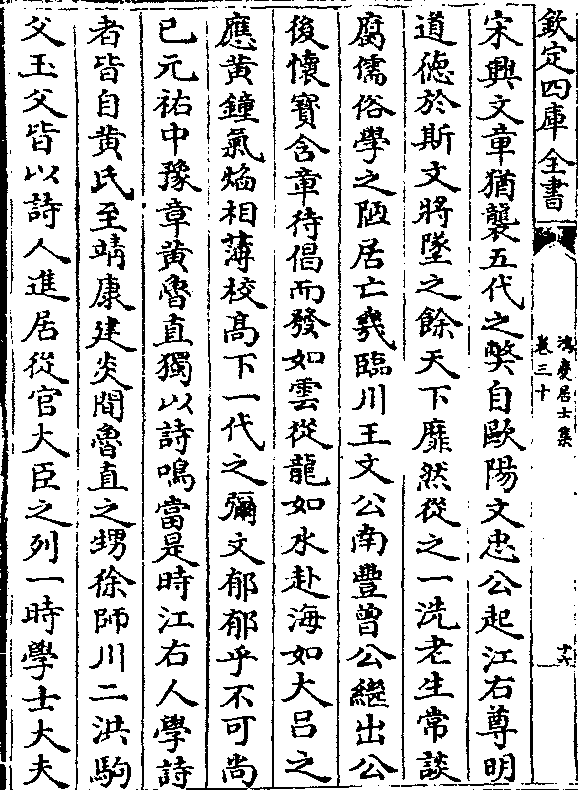 欽定四庫全書
鴻慶居士集
卷三十
十六
宋興文章猶襲五代之弊自歐陽文忠公起江右尊明
道德於斯文將墜之餘天下靡然從之一洗老生常談
腐儒俗學之陋居亡幾臨川王文公南豐曽公繼出公
後懷寳含章待倡而發如雲從龍如水赴海如大吕之
應黄鐘氣焰相薄校髙下一代之彌文郁郁乎不可尚
已元祐中豫章黄魯直獨以詩鳴當是時江右人學詩
者皆自黄氏至靖康建炎間魯直之甥徐師川二洪駒
父玉父皆以詩人進居從官大臣之列一時學士大夫